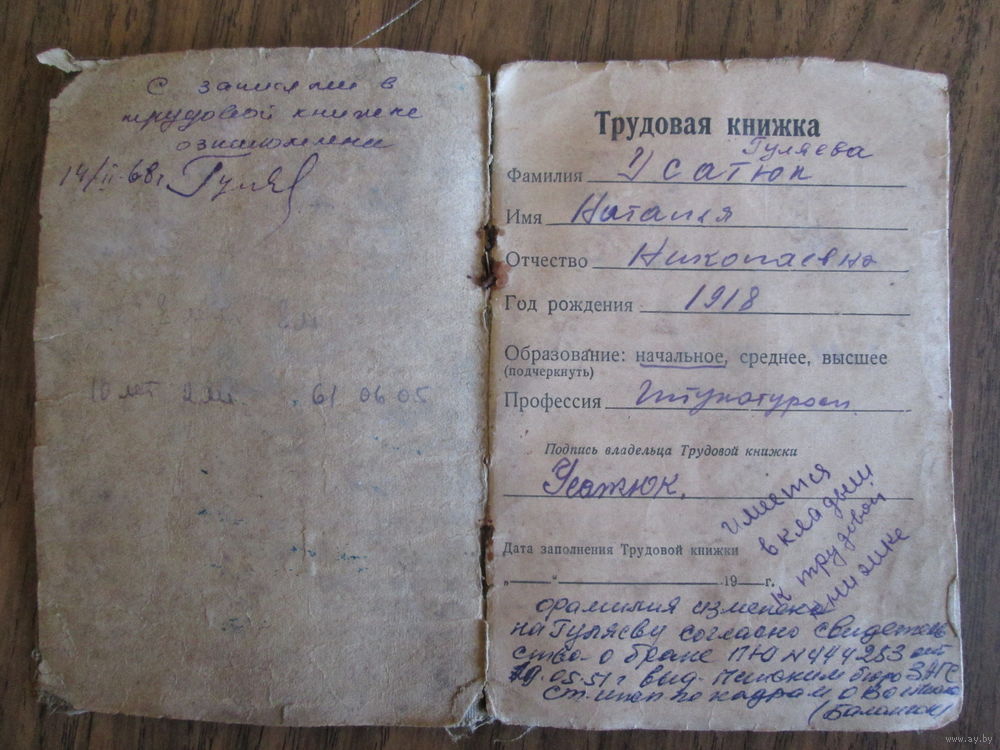 С записями в
трудовой книжке
ознакомлена
14/II-68г. Гуляе
10 лет 2 м. 61 06 05
Трудовая книжка
Гуляева
Фамилия Усатюк
Имя Наталия
Отчество Николаевна
Год рождения 1918
Образование: начальное, среднее, высшее
(подчеркнуть)
Профессия Штукатуром
Подпись владельца Трудовой книжки
Усатюк.
имеется
вкладыш
к трудовой
книжке
Дата заполнения Трудовой книжки
„ “ 19 г.
фамилия изменена
на Гуляеву согласно свидетель
ство о браке ПЮ N444253 от
19.05.51г выд. Минским бюро ЗАГС
Ст. инсп по кадрам
www.ay.by